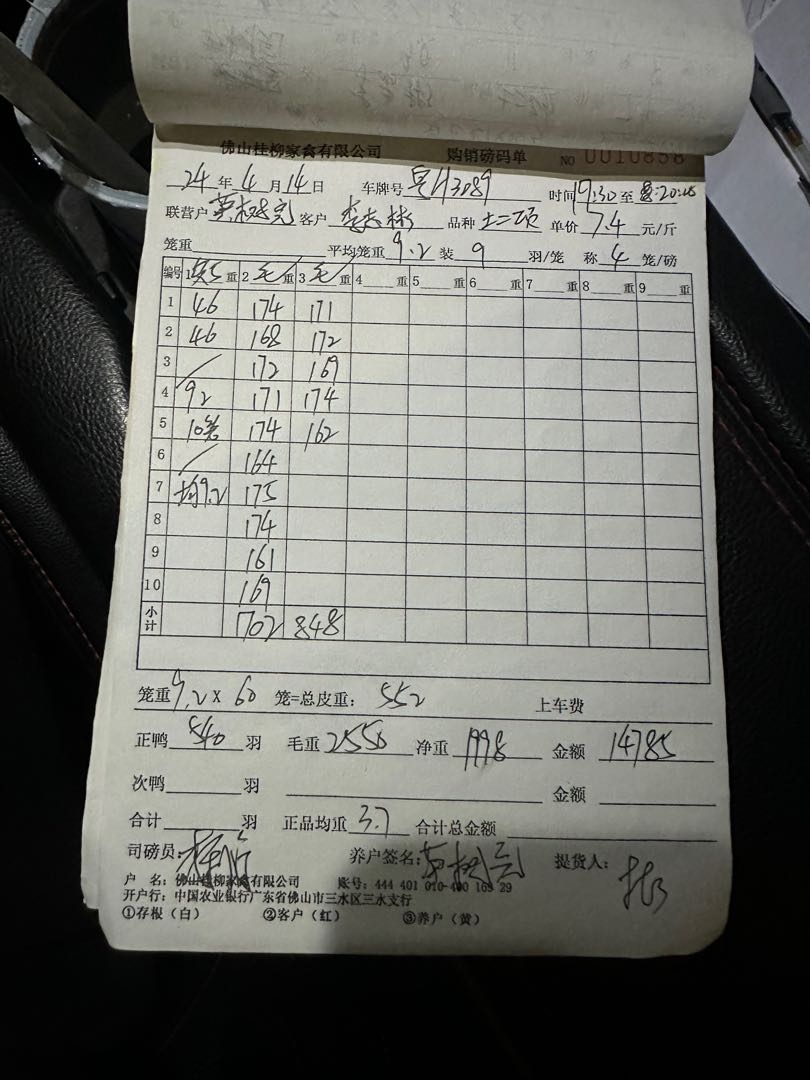 佛山桂柳家禽有限公司 购销磅码单 NO 0010858
24年4月14日 车牌号 时间 19:30至20:28
联营户 客户 李 品种 土二 单价 7.4 元/斤
笼重 平均笼重 9.2 装 9 羽/笼 称 4 笼/磅
编号 1 重 2 毛 重 3 毛 重 4 重 5 重 6 重 7 重 8 重 9 重
1 46 174 171
2 46 168 172
3 / 172 169
4 92 171 174
5 10笼 174 162
6 / 164
7 均9.2 175
8 174
9 161
10 169
小计 1702 848
笼重 9.2 X 60 笼=总皮重: 552 上车费
正鸭 540 羽 毛重 2550 净重 1998 金额 14785
次鸭 羽 金额
合计 羽 正品均重 3.7 合计总金额
司磅员: 养户签名: 提货人:
户 名: 佛山桂柳家禽有限公司 账号: 444 401 010 400 163 29
开户行: 中国农业银行广东省佛山市三水区三水支行
①存根（白） ②客户（红） ③养户（黄）